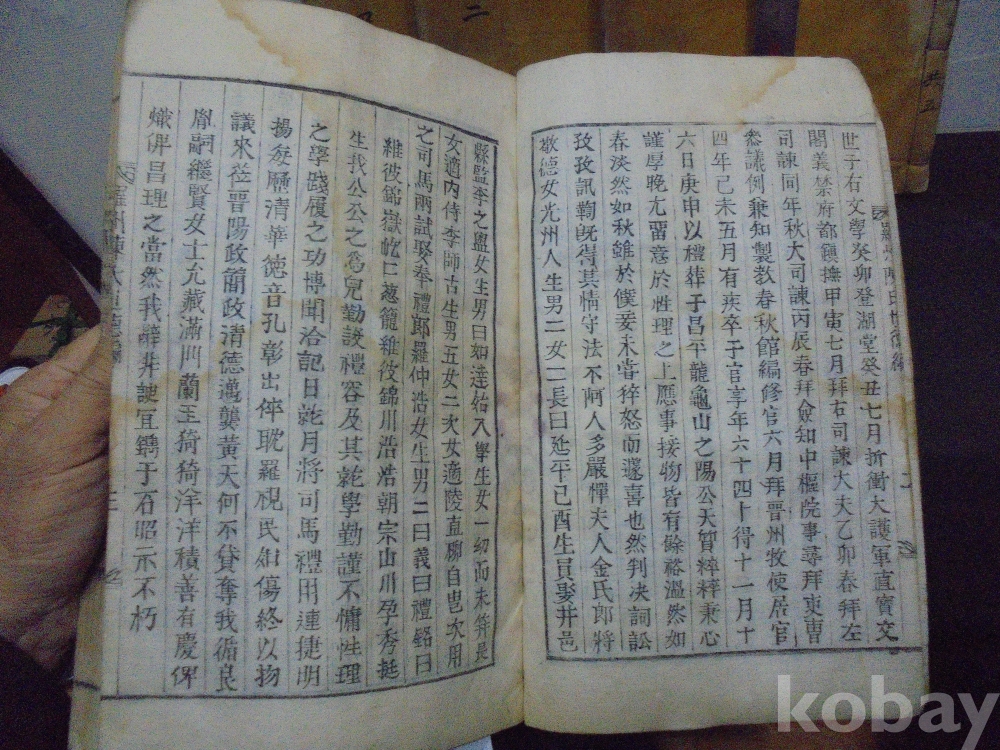 世子右文學癸卯登湖堂癸丑七月折衝大護軍直寶文
閣義禁府都鎭撫甲寅七月拜右司諫大夫乙卯春拜左
司諫同年秋大司諫丙辰春拜僉知中樞院事尋拜吏曹
參議例兼知製敎春秋館編修官六月拜晋州牧使居官
四年己未五月有疾卒于官享年六十四十得十一月十
六日庚申以禮葬于昌平龍龜山之陽公天質粹精秉心
謹厚晚尤留意於性理之上應事接物皆有餘裕溫然如
春淡然如秋雖於僕妾未嘗倅怒而遽喜也然判决詞訟
孜孜訊鞫旣得其情守法不阿人多嚴憚夫人金氏郎將
敬德女光州人生男二女二長曰延平己酉生員娶井邑
縣監李之盥女生男曰如達始入學生女一幼而未笄長
女適內侍李師古生男五女二次女適陵直柳自邑次用
之司馬兩試娶奉禮郎羅仲浩女生男二曰義曰禮銘曰
維彼錦嶽屹屹葱籠維彼錦川浩浩朝宗山川孕秀挺
生我公公之爲兒勤設禮容及其乾學勤謹不慵性理
之學踐履之功博聞洽記日就月將司馬禮用連捷明
揚每歷清華德音孔彰出倅耽羅視民如傷終以物
議來莅晋陽政簡政清德邁龔黃天何不貸奪我循良
胤嗣繼賢女士允臧滿門蘭玉猗猗洋洋積善有慶俾
熾俾昌理之當然我辭非諛宜鐫于石昭示不朽
二
共五
kobay